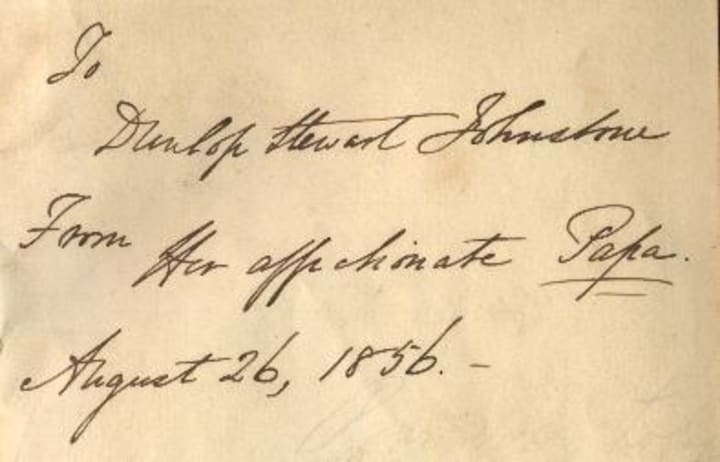 To
Dunlop Stewart Johnstone
From Her affectionate Papa.
August 26, 1856. -